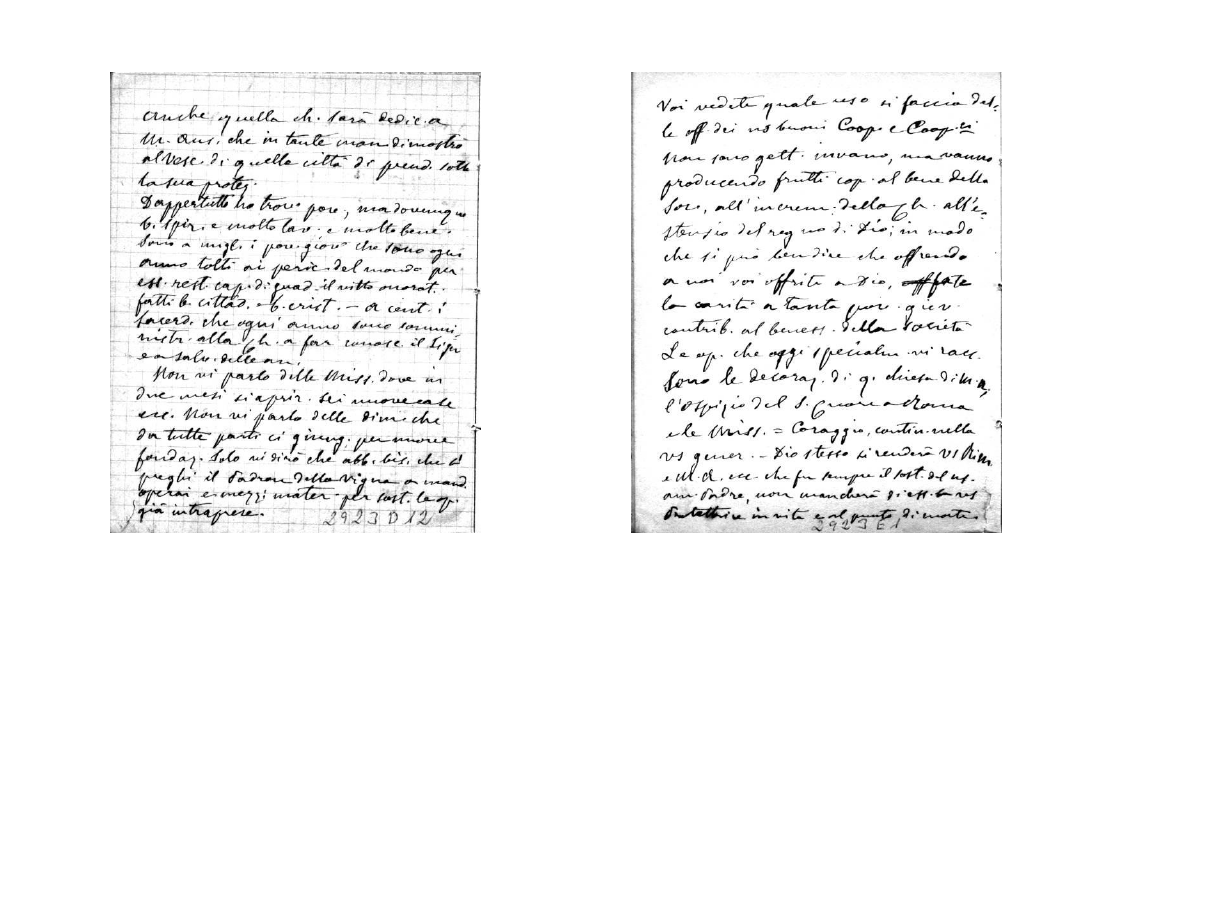 anche quella ch. sarà dedic. a
M. Aus. che in tante man. dimostrò
al Vesc. di quella città di prend. sotto
la sua protez.
Dappertutto ho trov. pov., ma dovunque
b. spir. e molto lav. e molto bene.
Sono a migl. i pov. giov. che sono ogni
anno tolti ai peric. del mondo per
ess. rest. cap. di guad. il vitto onorat.
fatti b. cittad. e b. crist. – a cent. i
sacerd. che ogni anno sono sommi-
nistr. alla Ch. a far conosc. il Sign
e a salv. delle an.
Non vi parlo delle Miss. dove in
due mesi si aprir. sei nuove case
ecc. Non vi parlo delle dim. che
da tutte parti ci giung. per nuove
fondaz. Solo vi dirò che abb. bis. che si
preghi il Padron della Vigna a mand.
operai e mezzi mater. per sost. le op.
già intraprese.
2923 D 12
Voi vedete quale uso si faccia del-
le off. dei ns buoni Coop. e Coop.ci
Non sono gett. invano, ma vanno
producendo frutti cop. al bene della
Soc., all'increm. della Ch. all'e-
stensio. del regno di Dio; in modo
che si può ben dire che offrendo
a noi voi offrite a Dio,
la carità a tanta pov. giov.
contrib. al beness. della Società
Le op. che oggi specialm. vi racc.
sono le decoraz. di q. chiesa di M. A,
l'Ospizio del S. Cuore a Roma
e le Miss. = Coraggio, contin. nella
vs gener. – Dio stesso si renderà vs Rim
e M. A. ecc. che fu sempre il sost. del ns.
am. Padre, non mancherà di ess. la vs
Protettrice in vita e al punto di morte.
2923 E 1